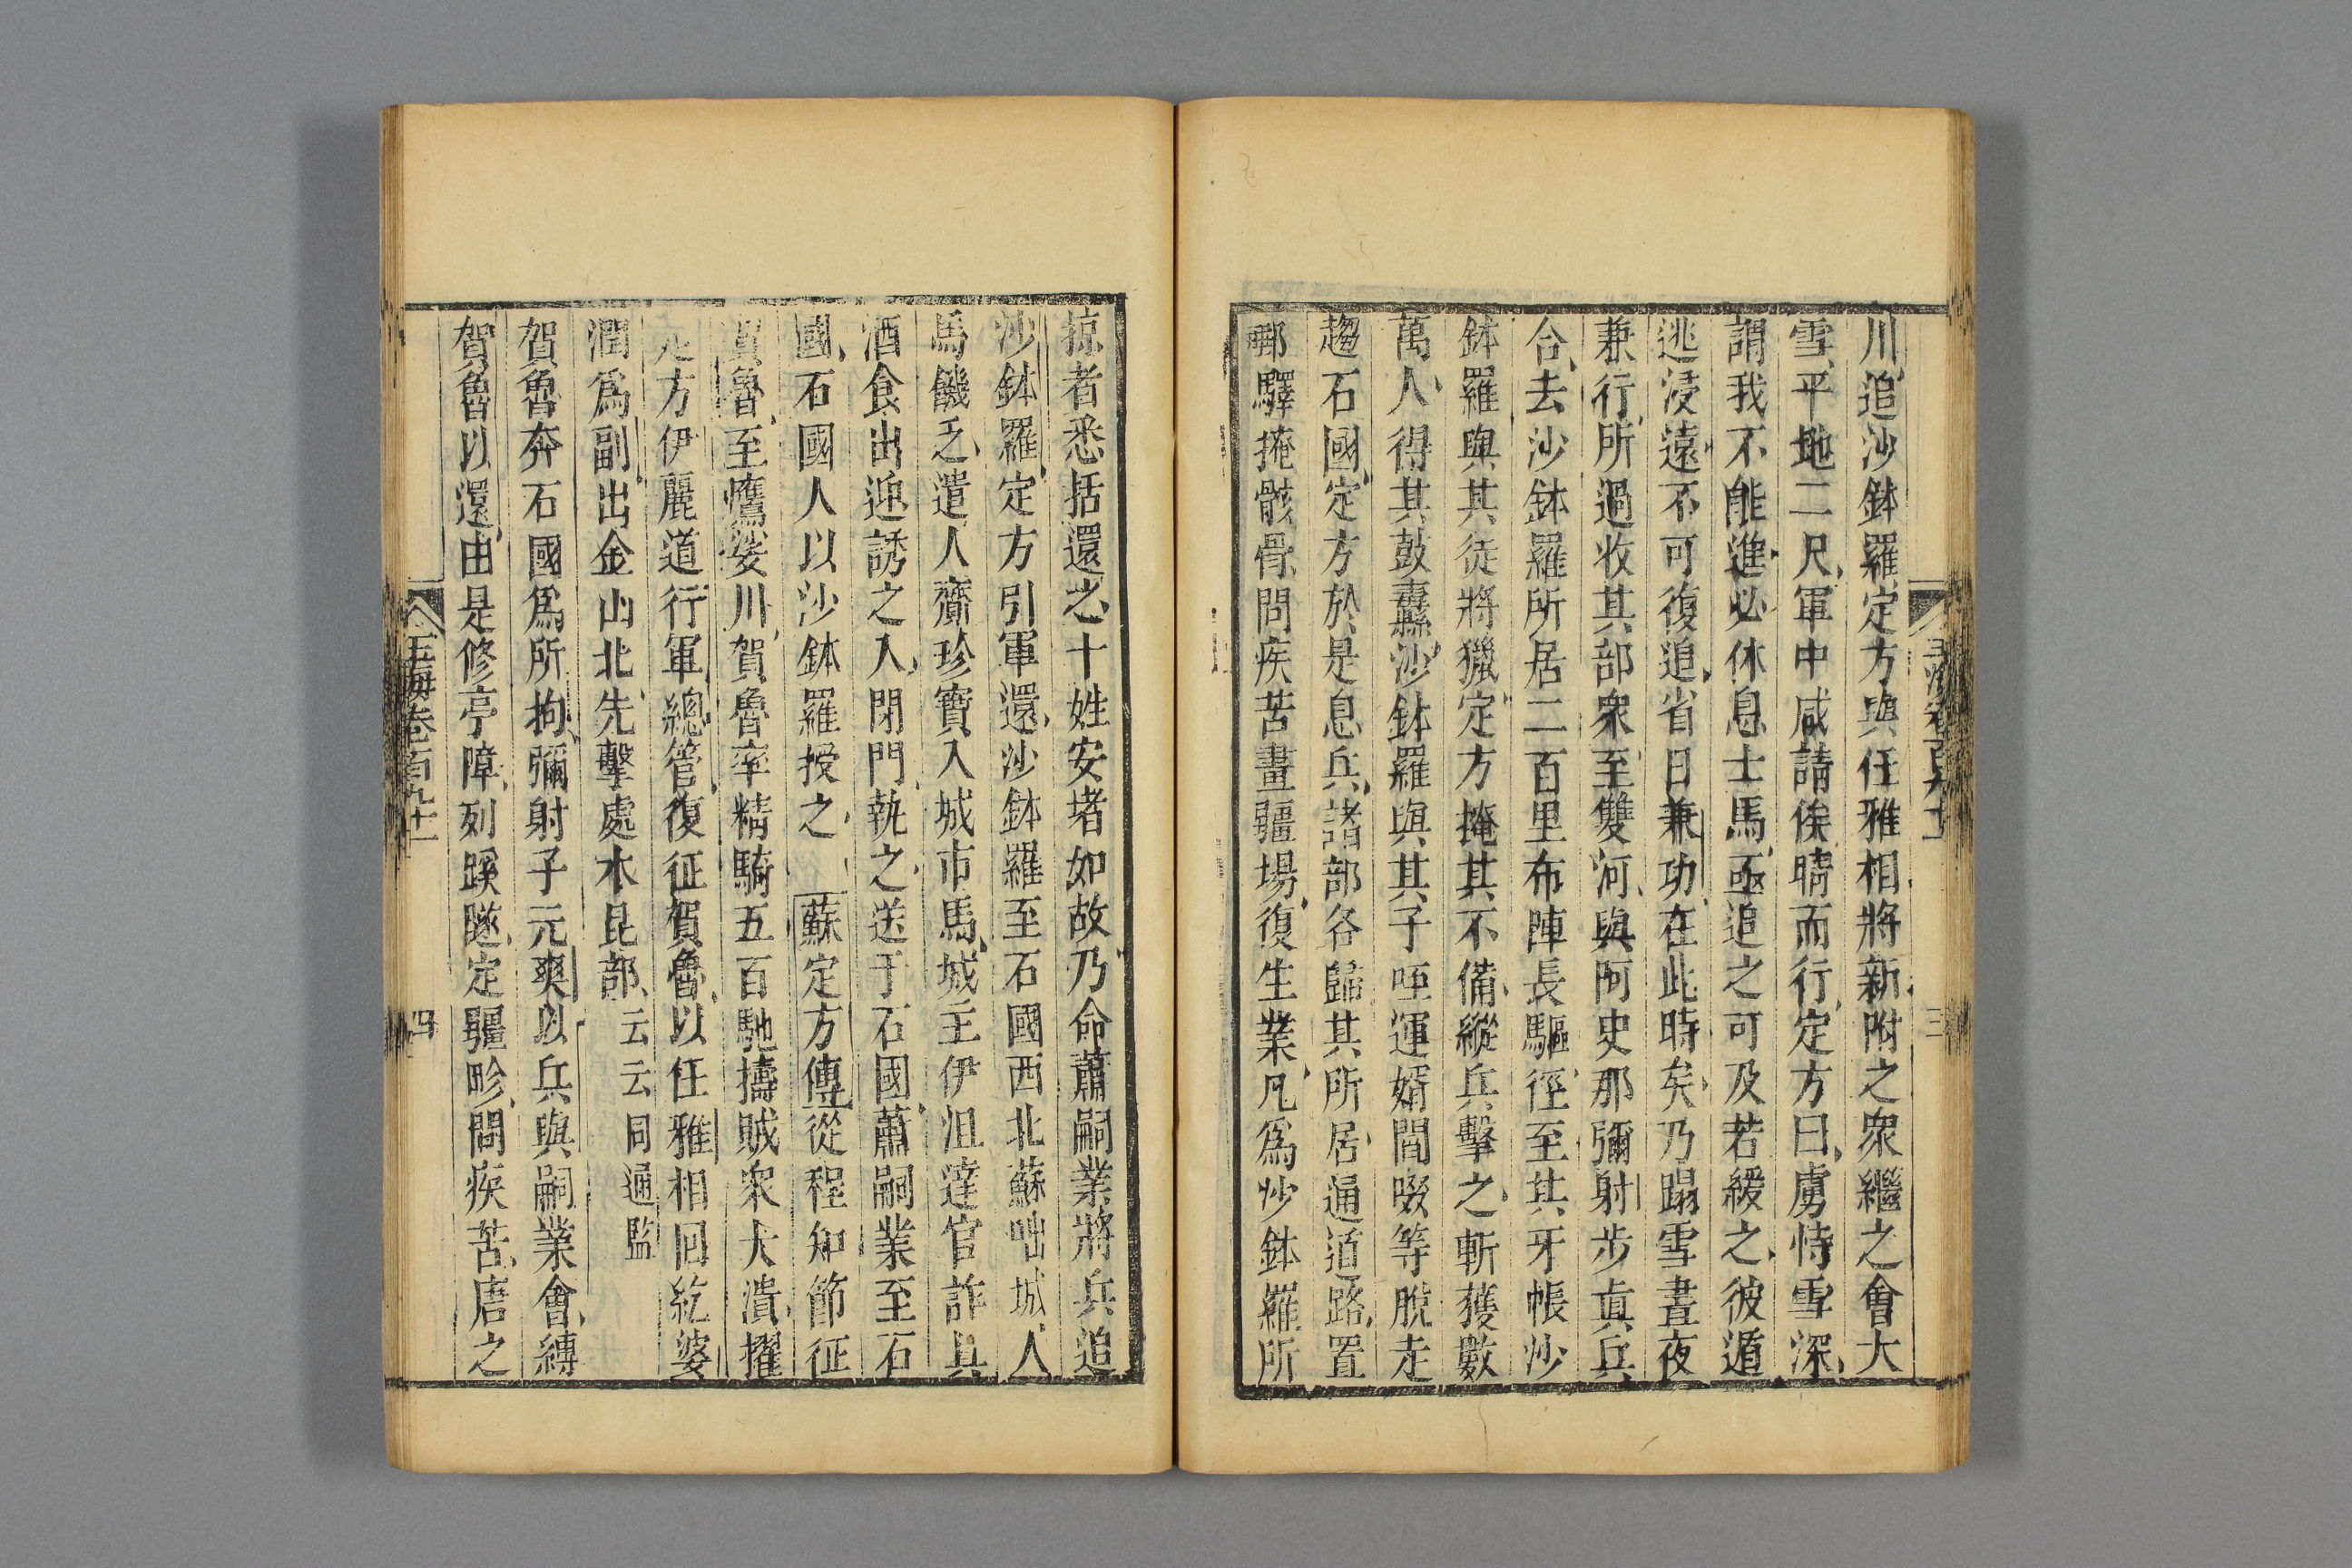 川追沙鉢羅定方與任雅相將新附之衆繼之會大
雪平地二尺軍中咸請俟晴而行定方曰虜恃雪深
謂我不能進必休息士馬亟追之可及若緩之彼遁
逃浸遠不可復追省日兼功在此時矣乃蹋雪晝夜
兼行所過收其部衆至雙河與阿史那彌射步眞兵
合去沙鉢羅所居二百里布陣長驅徑至其牙帳沙
鉢羅與其徒將獵定方掩其不備縱兵擊之斬獲數
萬人得其鼓纛沙鉢羅與其子咥運婿閻啜等脫走
趨石國定方於是息兵諸部各歸其所居通道路置
郵驛掩骸骨問疾苦畫疆場復生業凡爲沙鉢羅所
三
掠者悉括還之十姓安堵如故乃命蕭嗣業將兵追
沙鉢羅定方引軍還沙鉢羅至石國西北蘇咄城人
馬饑乏遣人齎珍寶入城市馬城主伊沮達官詐具
酒食出迎誘之入閉門執之送于石國蕭嗣業至石
國石國人以沙鉢羅授之 蘇定方傳從程知節征
賀魯至鷹娑川賀魯率精騎五百馳擣賊衆大潰擢
定方伊麗道行軍總管復征賀魯以任雅相回紇婆
潤爲副出金山北先擊處木昆部云云同通鑑
賀魯奔石國爲所拘彌射子元爽以兵與嗣業會縛
賀魯以還由是修亭障列蹊隧定疆畛問疾苦唐之
玉海卷一百九十一
四